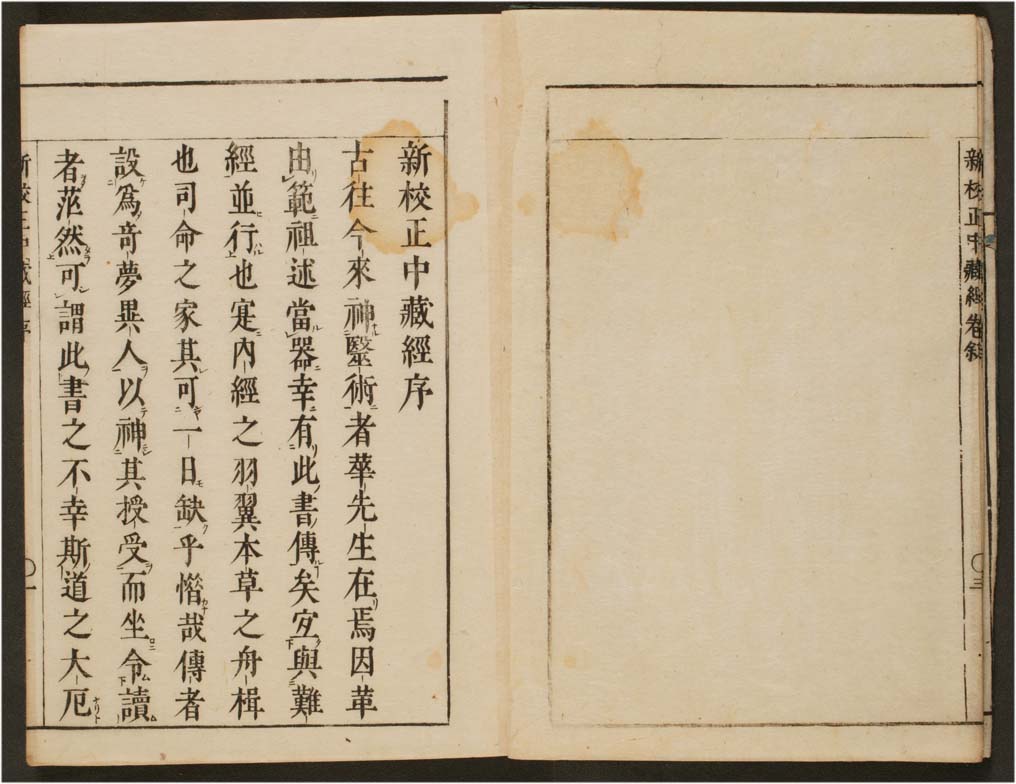 新校正中藏經卷叙
〇三
新校正中藏經序
古往今來神毉術者華先生在焉因革
由範祖述當器幸有此書傳矣宐與難
經並行也寔內經之羽翼本草之舟楫
也司命之家其可一日缺乎憯哉傳者
設爲竒夢異人以神其授受而坐令讀
者茫然可謂此書之不幸斯道之大厄
新校正中藏經序
〇一